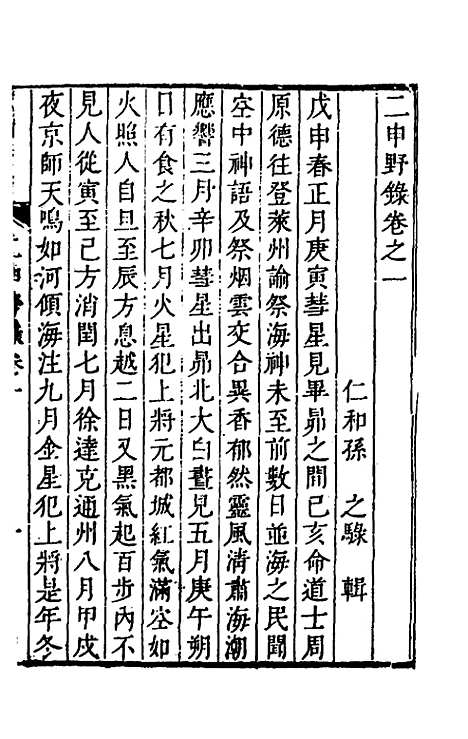 二申野錄卷之一
仁和孫 之騄 輯
戊申春正月庚寅彗星見畢昴之間己亥命道士周
原德往登萊州諭祭海神未至前數日並海之民聞
空中神語及祭烟雲交合異香郁然靈風清肅海潮
應響三月辛卯彗星出昴北大白晝見五月庚午朔
日有食之秋七月火星犯上將元都城紅氣滿空如
火照人自旦至辰方息越二日又黑氣起百步內不
見人從寅至巳方消閏七月徐達克通州八月甲戌
夜京師天鳴如河傾海注九月金星犯上將是年冬
二申野錄卷一
一